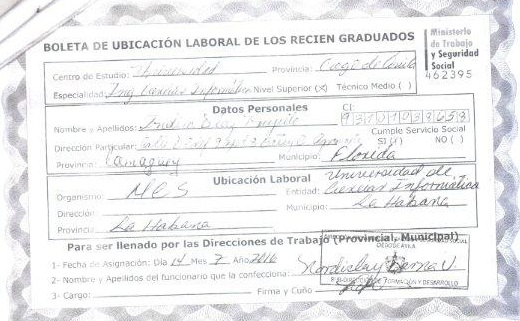 BOLETA DE UBICACIÓN LABORAL DE LOS RECIEN GRADUADOS
Ministerio
de Trabajo
y Seguridad
Social
462395
Centro de Estudio: Universidad Provincia: Ciego de Avila
Especialidad: Ing Ciencias Informática Nivel Superior (x) Técnico Medio ( )
Datos Personales
CI:
Nombre y Apellidos:
Cumple Servicio Social
Dirección Particular: SI (Y) NO ( )
Provincia: Camagüey Municipio: Florida
Ubicación Laboral
Organismo: MES Entidad: Universidad de Ciencias Informática
Dirección: Municipio: La Habana
Provincia: La Habana
Para ser llenado por las Direcciones de Trabajo (Provincial, Municipal)
1- Fecha de Asignación: Día 14 Mes 7 Año 2016
2- Nombre y Apellidos del funcionario que la confecciona:
3- Cargo: Firma y Cuño